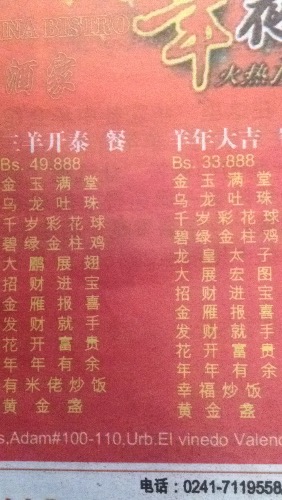 NA BISTRO
酒家
年夜
火热
三羊开泰 餐
Bs. 49.888
金玉满堂
乌龙吐珠
千岁彩花球
碧绿金柱鸡
大鹏展翅
招财进宝
金雁报喜
发财就手
花开富贵
年年有余
有米佬炒饭
黄金盏
羊年大吉
Bs. 33.888
金玉满堂
乌龙吐珠
千岁彩花球
碧绿金柱鸡
龙皇太子
大展宏图
招财进宝
金雁报喜
发财就手
花开富贵
年年有余
幸福炒饭
黄金盏
s,Adam#100-110,Urb.El vinedo Valenc
电话：0241-7119558